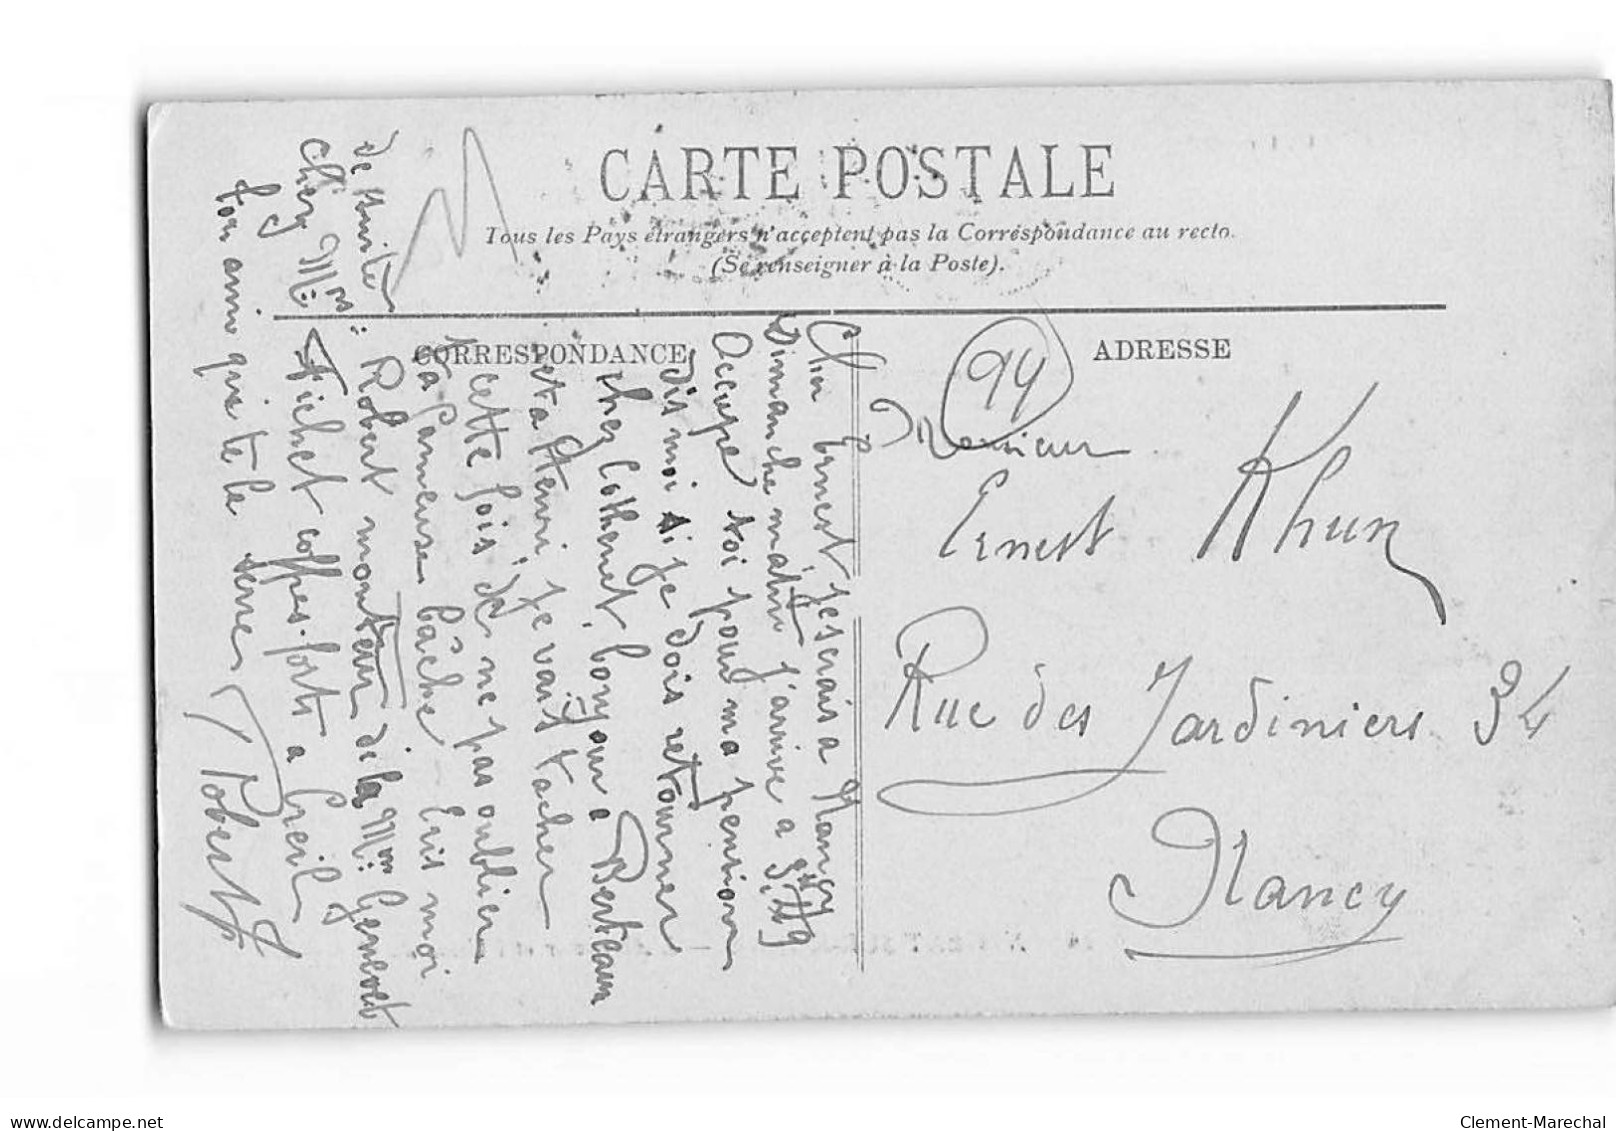 CARTE POSTALE
Tous les Pays étrangers n'acceptent pas la Correspondance au recto.
(Se renseigner à la Poste).
CORRESPONDANCE
ADRESSE
94
Monsieur
Ernest Khun
Rue des Jardiniers 34
Nancy
Cher Ernest je serais a Nancy
Dimanche matin j'arrive a 3.H9
Occupe toi pour ma pension
dis moi si je dois retourner
chez Cothenet, bonjour a Berteaux
et a Henri, je vais tacher
cette fois de ne pas oublier
ta fameuse bâche Ecris moi
de suite
Robert monteur de la Mon Genevet
chez Mrs: Fichet coffres-forts a Creil
ton ami qui te la serre
Robert
delcampe.net
Clement-Marechal